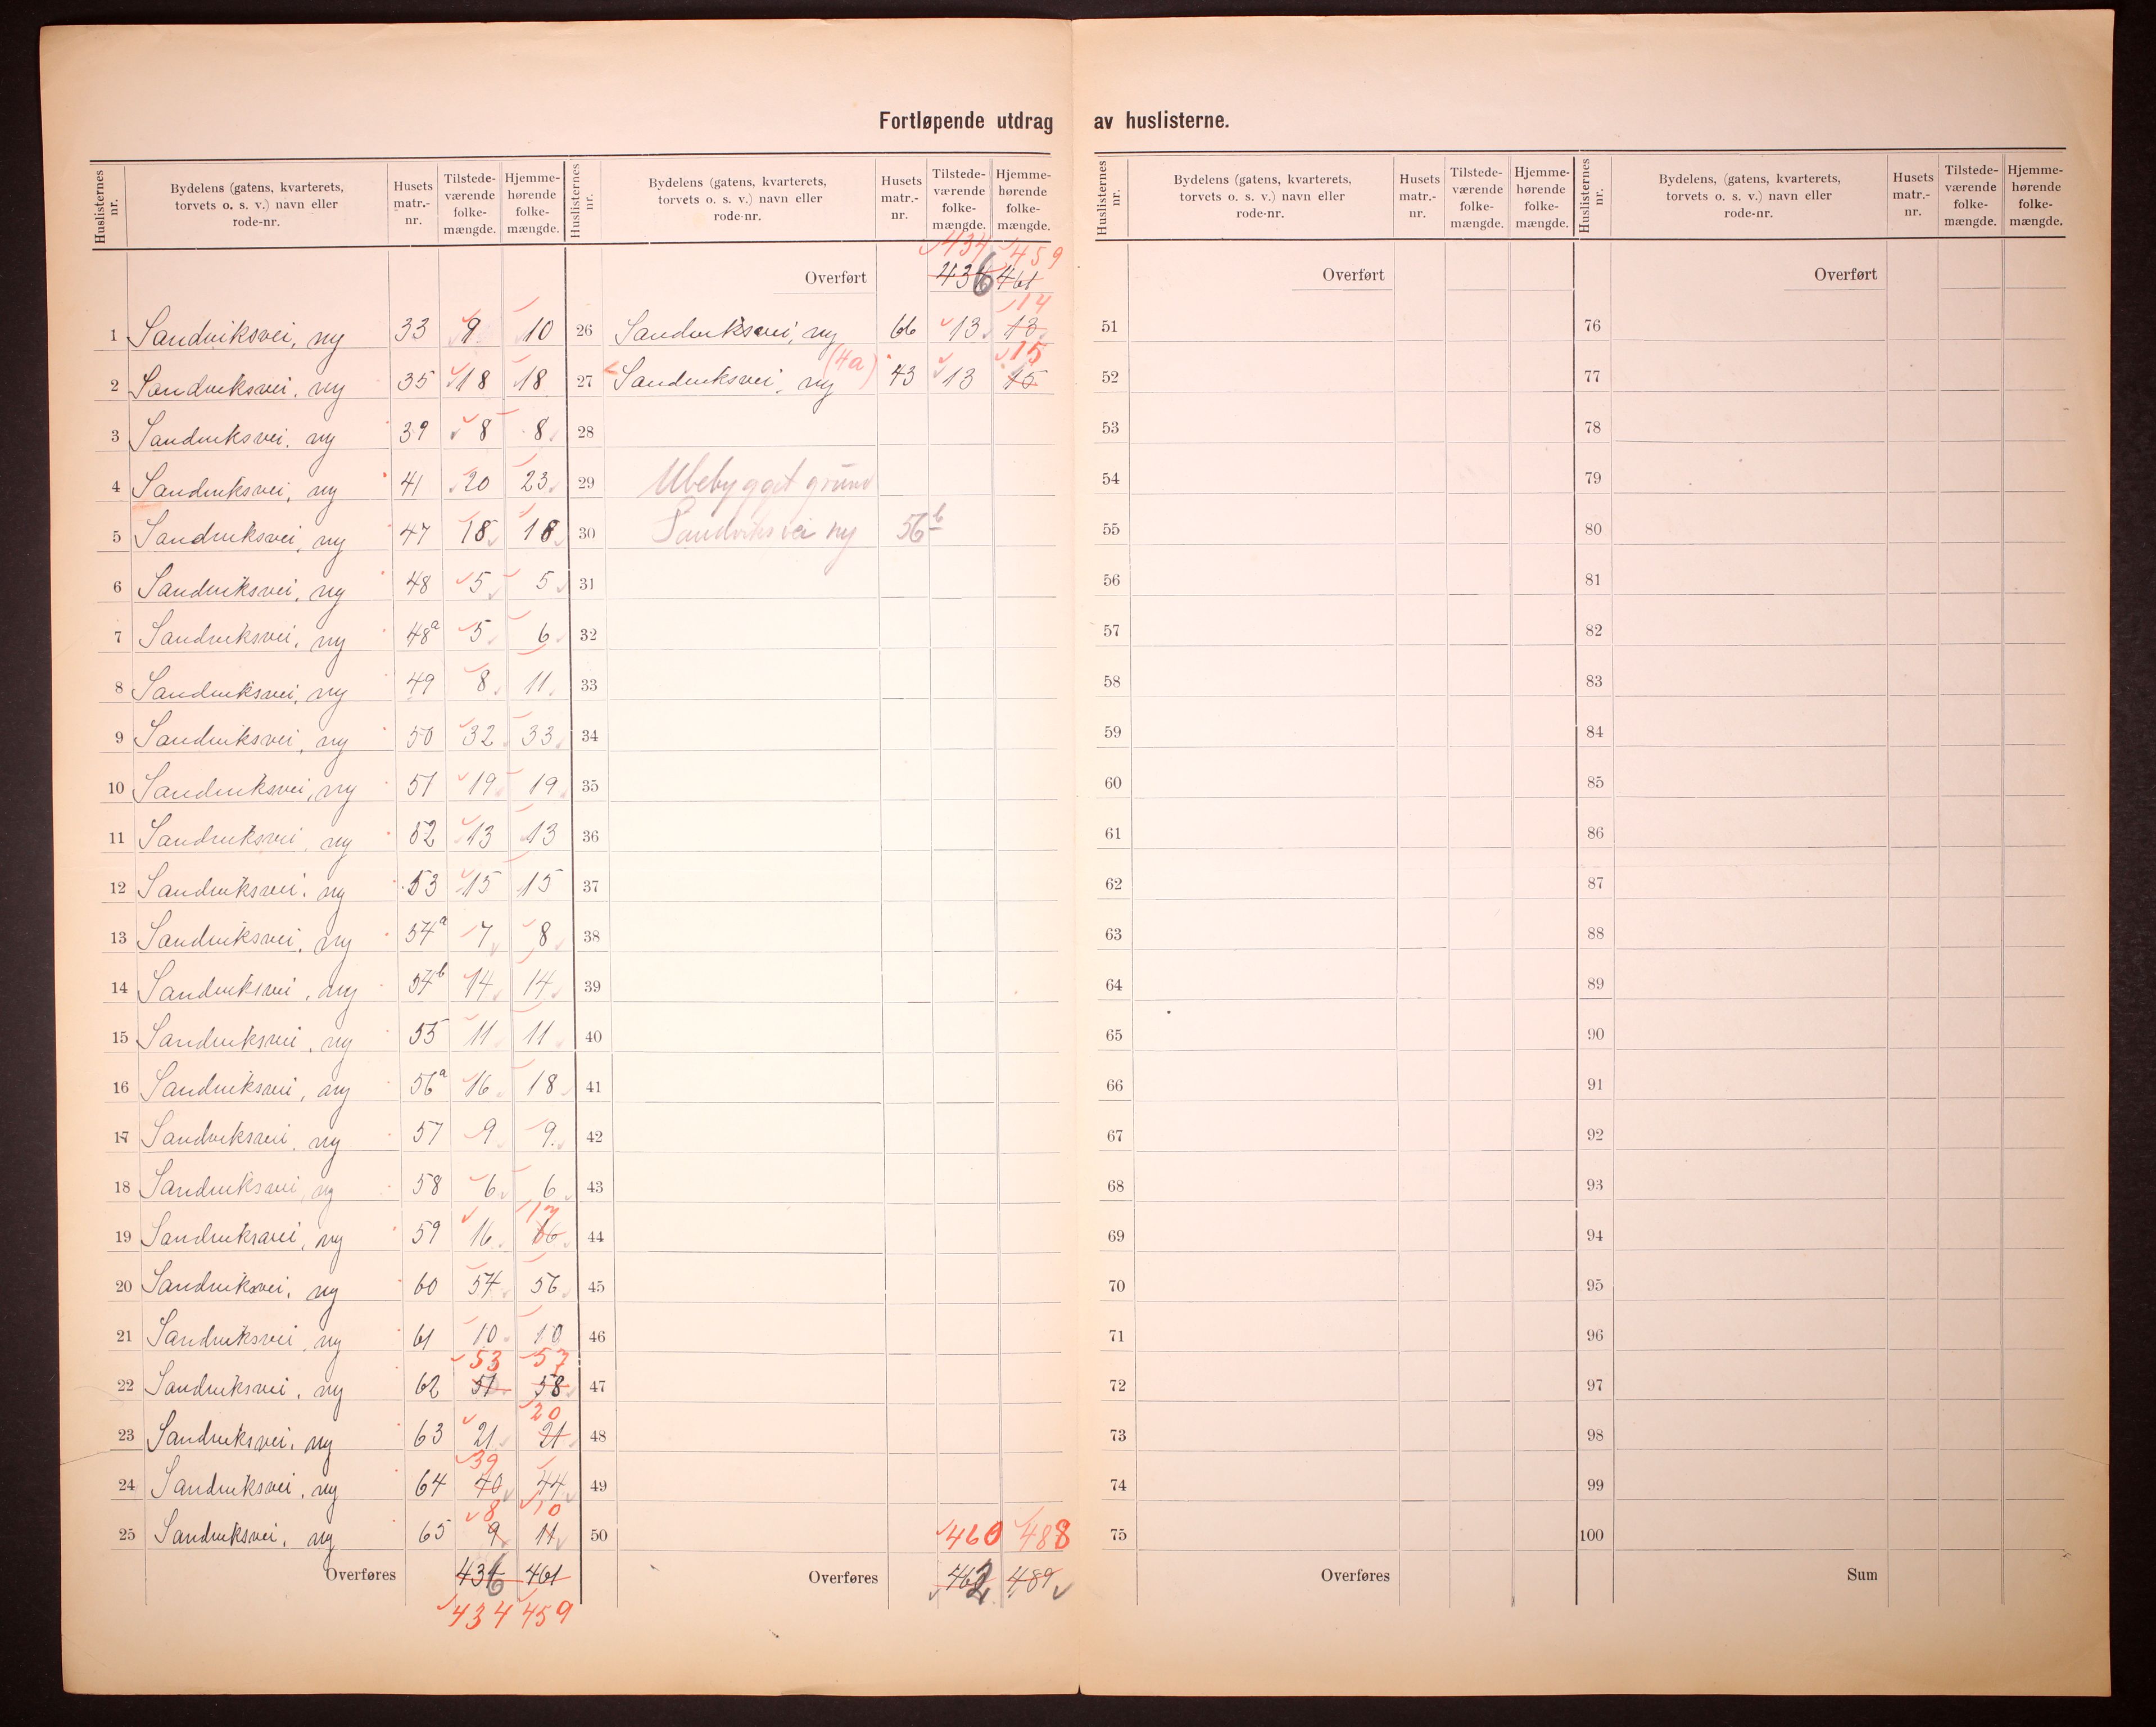 Fortløpende utdrag av huslisterne.
Huslisternes nr. | Bydelens (gatens, kvarterets, torvets o. s. v.) navn eller rode-nr. | Husets matr.-nr. | Tilstede-værende folke-mængde. | Hjemme-hørende folke-mængde.
1 Sandviksvei, ny 33 9 10
2 Sandviksvei, ny 35 18 18
3 Sandviksvei, ny 39 8 8
4 Sandviksvei, ny 41 20 23
5 Sandviksvei, ny 47 18 18
6 Sandviksvei, ny 48 5 5
7 Sandviksvei, ny 48a 5 6
8 Sandviksvei, ny 49 8 11
9 Sandviksvei, ny 50 32 33
10 Sandviksvei, ny 51 19 19
11 Sandviksvei, ny 52 13 13
12 Sandviksvei, ny 53 15 15
13 Sandviksvei, ny 54a 7 8
14 Sandviksvei, ny 54b 14 14
15 Sandviksvei, ny 55 11 11
16 Sandviksvei, ny 56a 16 18
17 Sandviksvei, ny 57 9 9
18 Sandviksvei, ny 58 6 6
17
19 Sandviksvei, ny 59 16 16
20 Sandviksvei, ny 60 54 56
21 Sandviksvei, ny 61 10 10
53 57
22 Sandviksvei, ny 62 51 58
20
23 Sandviksvei, ny 63 21 21
39
24 Sandviksvei, ny 64 40 44
8 10
25 Sandviksvei, ny 65 9 11
Overføres 436 461
434 459
Huslisternes nr. | Bydelens (gatens, kvarterets, torvets o. s. v.) navn eller rode-nr. | Husets matr.-nr. | Tilstede-værende folke-mængde. | Hjemme-hørende folke-mængde.
434 459
Overført 436 461
14
26 Sandviksvei, ny 66 13 13
(4a) 15
27 Sandviksvei, ny 43 13 15
28
29 Ubebygget grund
30 Sandviksvei ny 56b
31
32
33
34
35
36
37
38
39
40
41
42
43
44
45
46
47
48
49
50 460 488
Overføres 462 489
Huslisternes nr. | Bydelens (gatens, kvarterets, torvets o. s. v.) navn eller rode-nr. | Husets matr.-nr. | Tilstede-værende folke-mængde. | Hjemme-hørende folke-mængde.
Overført
51
52
53
54
55
56
57
58
59
60
61
62
63
64
65
66
67
68
69
70
71
72
73
74
75
Overføres
Huslisternes nr. | Bydelens, (gatens, kvarterets, torvets o. s. v.) navn eller rode-nr. | Husets matr.-nr. | Tilstede-værende folke-mængde. | Hjemme-hørende folke-mængde.
Overført
76
77
78
79
80
81
82
83
84
85
86
87
88
89
90
91
92
93
94
95
96
97
98
99
100
Sum